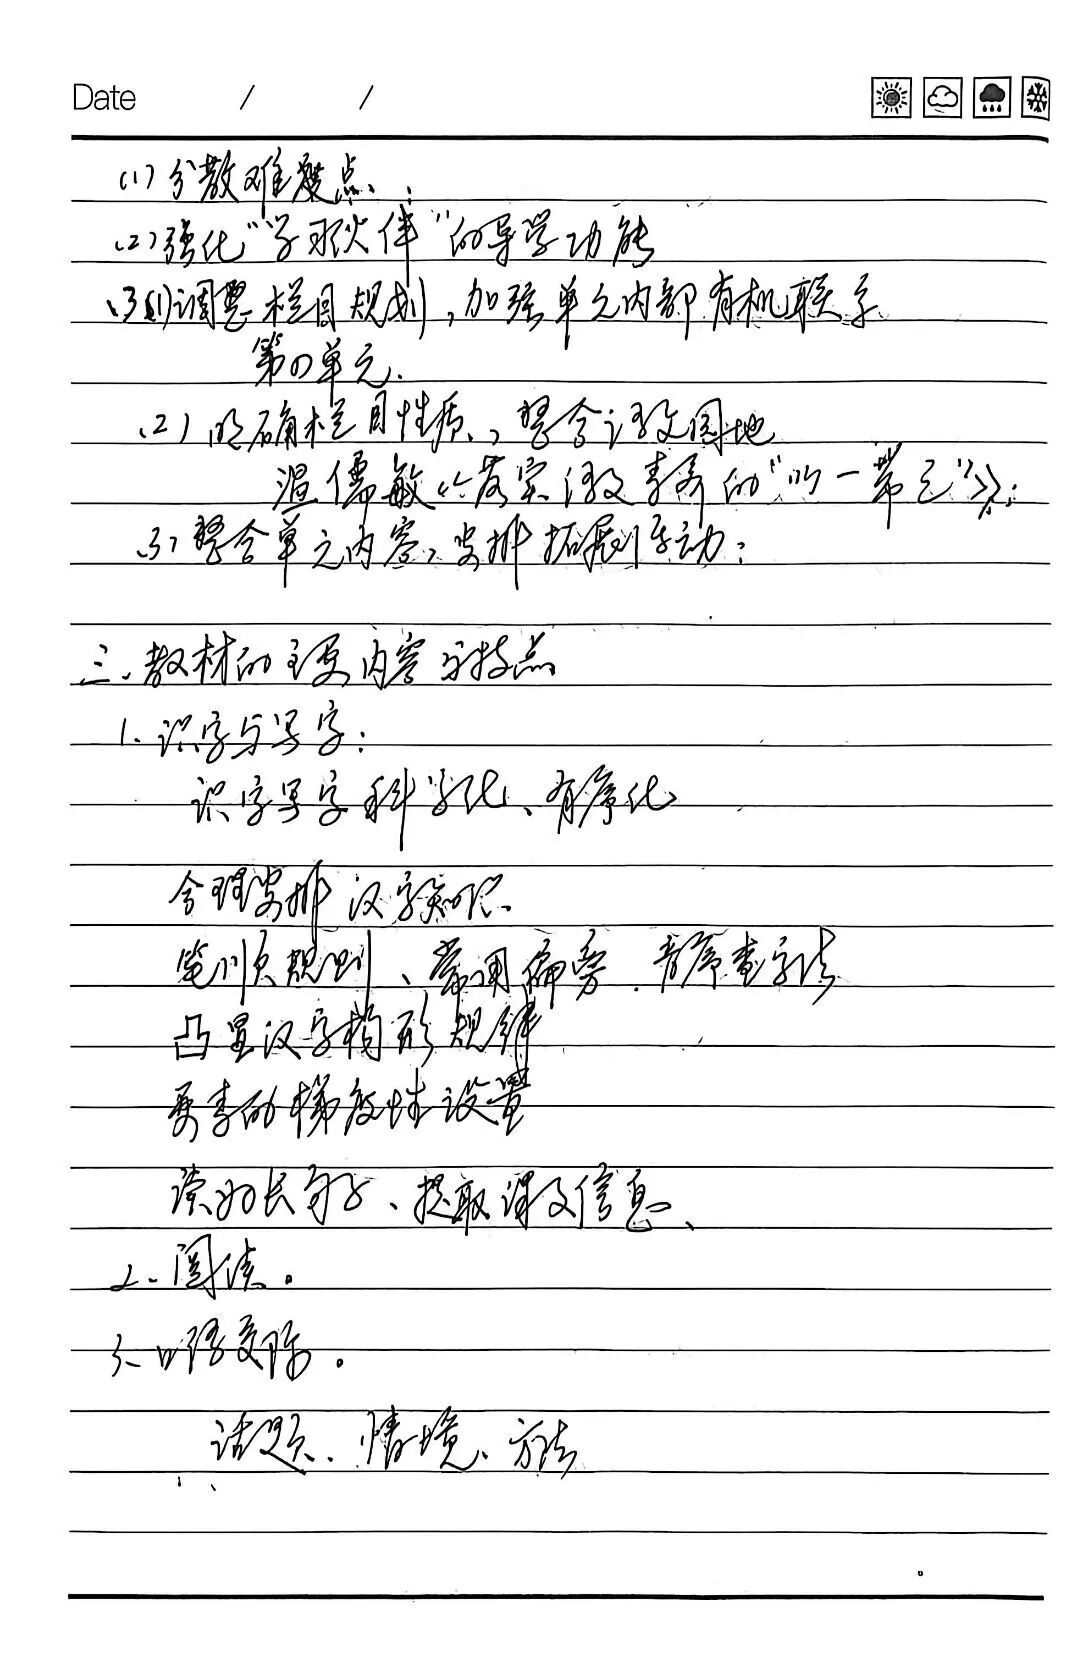 Date / /
(1)分散难度点、
(2)强化“学习伙伴”的导学功能
(3)(1)调整栏目规划，加强单元内部有机联系
第四单元.
(2)明确栏目性质、整合语文园地
温儒敏《落实语文素养的“以一带三”》：
(3)整合单元内容，安排拓展活动：
三、教材的主要内容与特点
1.识字与写字：
识字写字科学化、有序化
合理安排汉字知识、
笔顺规则、常用偏旁、音序查字法
凸显汉字构形规律
要素的梯度性设置
读好长句子、提取课文信息、
2、阅读。
3、口语交际。
话题、情境、方法